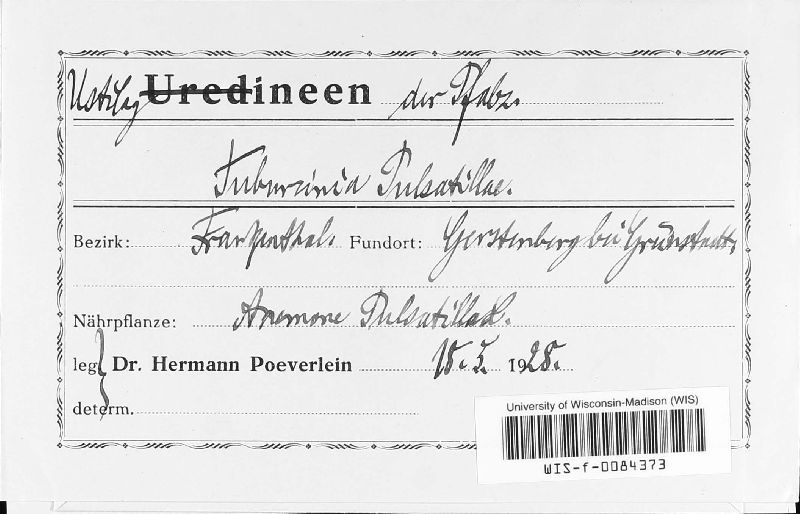 Ustilagineen der Pfalz.
Tuburcinia Pulsatillae.
Bezirk: Frankenthal. Fundort: Gerstenberg bei Grünstadt.
Nährpflanze: Anemone Pulsatilla L.
leg. Dr. Hermann Poeverlein 15. 5. 1928.
determ.
University of Wisconsin-Madison (WIS)
WIS-f-0084373